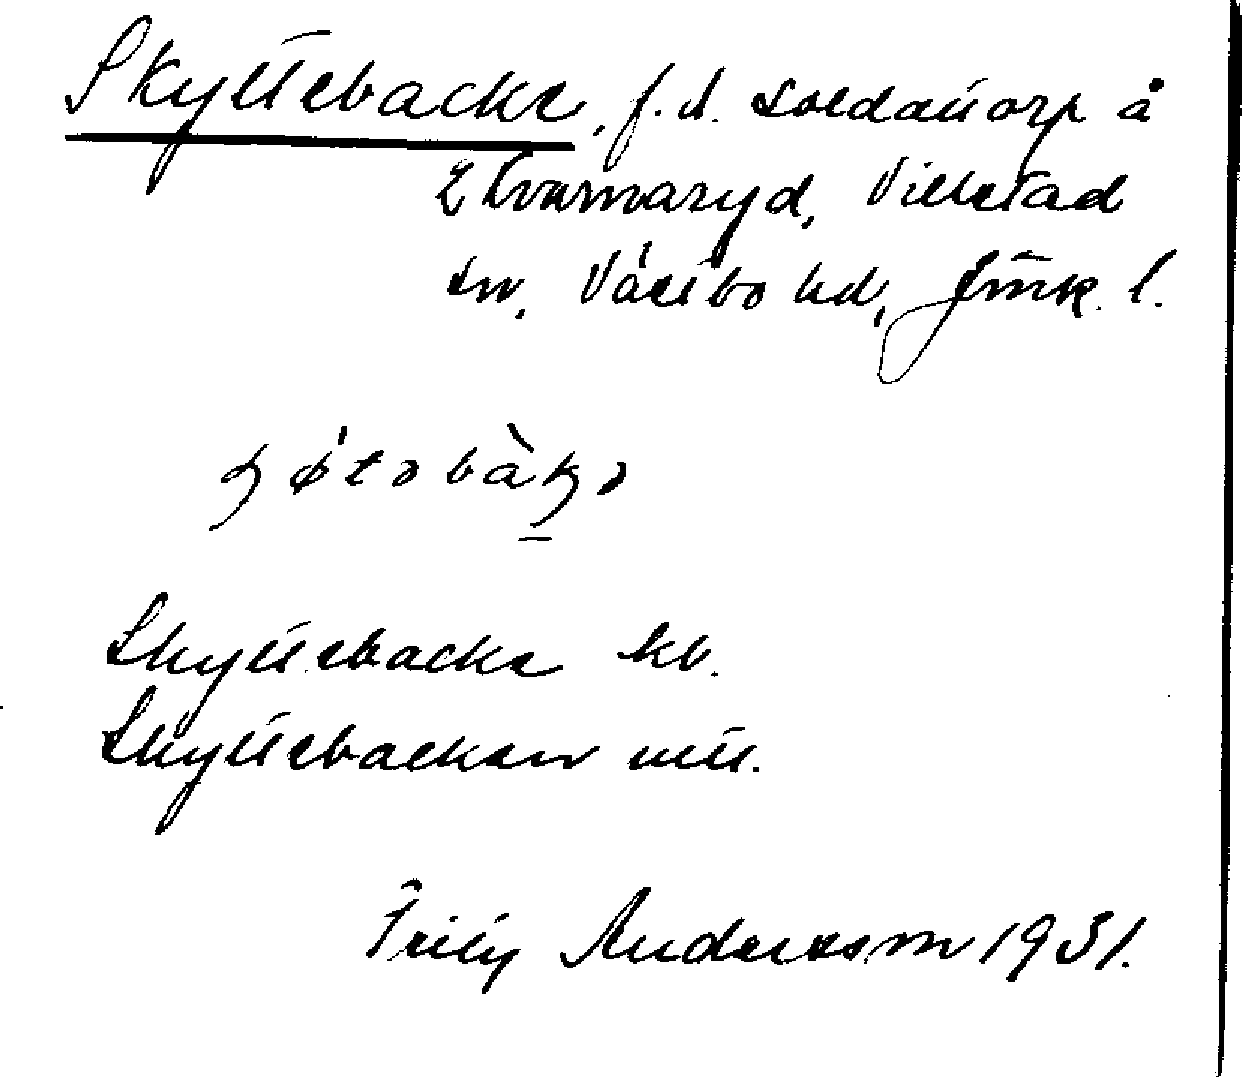 Skyttebacke, f.d. soldattorp å
Kvarnaryd, Villstad
sn, Västbo hd, Jönk. l.
Skyttebacke kb.
Skyttebacken utt.
Fritz Andersson 1931.